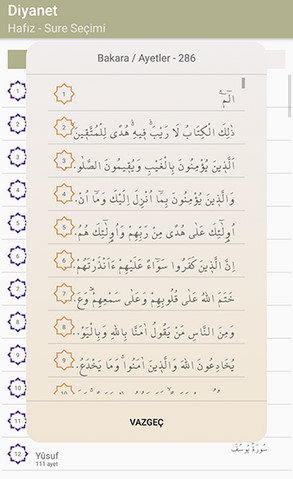 Diyanet
Hafız - Sure Seçimi
Bakara / Ayetler - 286
1 الٓمٓ
2 ذٰلِكَ الْكِتَابُ لَا رَيْبَۚۛ فٖيهِۚۛ هُدًى لِلْمُتَّقٖينَۙ
3 اَلَّذٖينَ يُؤْمِنُونَ بِالْغَيْبِ وَيُقٖيمُونَ الصَّلٰو.
4 وَالَّذٖينَ يُؤْمِنُونَ بِمَٓا اُنْزِلَ اِلَيْكَ وَمَٓا اُن.
5 اُو۬لٰٓئِكَ عَلٰى هُدًى مِنْ رَبِّهِمْ وَاُو۬لٰٓئِكَ هُمُ.
6 اِنَّ الَّذٖينَ كَفَرُوا سَوَٓاءٌ عَلَيْهِمْ ءَاَنْذَرْتَهُمْ.
7 خَتَمَ اللّٰهُ عَلٰى قُلُوبِهِمْ وَعَلٰى سَمْعِهِمْؕ وَع.
8 وَمِنَ النَّاسِ مَنْ يَقُولُ اٰمَنَّا بِاللّٰهِ وَبِالْيَوْ.
9 يُخَادِعُونَ اللّٰهَ وَالَّذٖينَ اٰمَنُواۚ وَمَا يَخْدَعُ.
VAZGEÇ
12 Yûsuf سُورَةُ يُوسُفَ
111 ayet